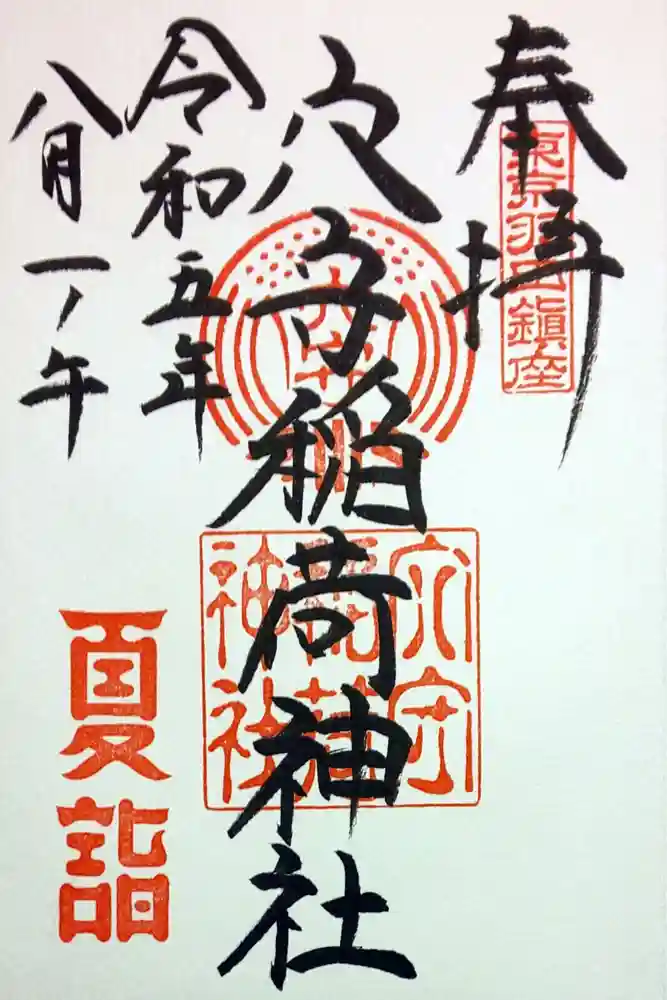 奉拝
東京羽田鎮座
穴守稲荷神社
穴守
稲荷
神社
令和五年
八月一ノ午
夏詣